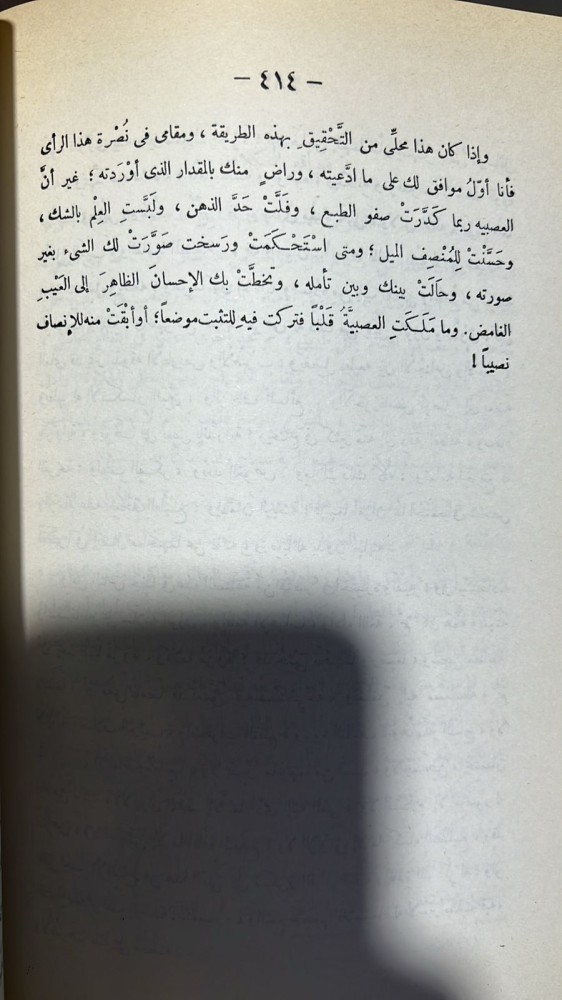 — ٤١٤ —
وإذا كان هذا محلِّى من التَّحْقِيقِ بهذه الطريقة ، ومقامى فى نُصْرة هذا الرأى
فأنا أوّلُ موافق لك على ما ادَّعيته ، وراضٍ منك بالمقدار الذى أوْرَدته ؛ غير أنَّ
العصبيه ربما كَدَّرَتْ صفو الطبع ، وفَلَّتْ حَدَّ الذهن ، ولَبَّستِ العِلْم بالشك ،
وحَسَّنْتْ لِلْمُنْصِف الميل ؛ ومتى اسْتَحْكَمَتْ ورَسخت صَوَّرَتْ لك الشىء بغير
صورته ، وحَالَتْ بينك وبين تأمله ، وتخطَّتْ بك الإحسانَ الظاهِرَ إلى العَيْبِ
الغامض. وما مَلَكَتِ العصبيَّةُ قَلْباً فتركت فيه لِلتثبت موضعاً؛ أو أبْقَتْ منه للإنصاف
نصيباً !